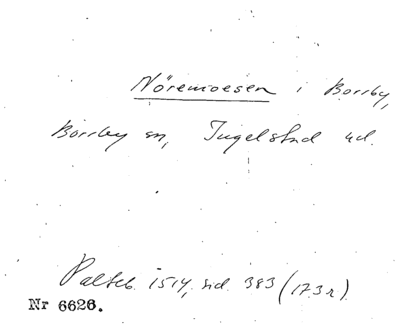 Nöremoesen i Borrby,
Borrby sn, Ingelstad hd.
Palteb. 1514, sid. 383 (173 r).
Nr 6626.